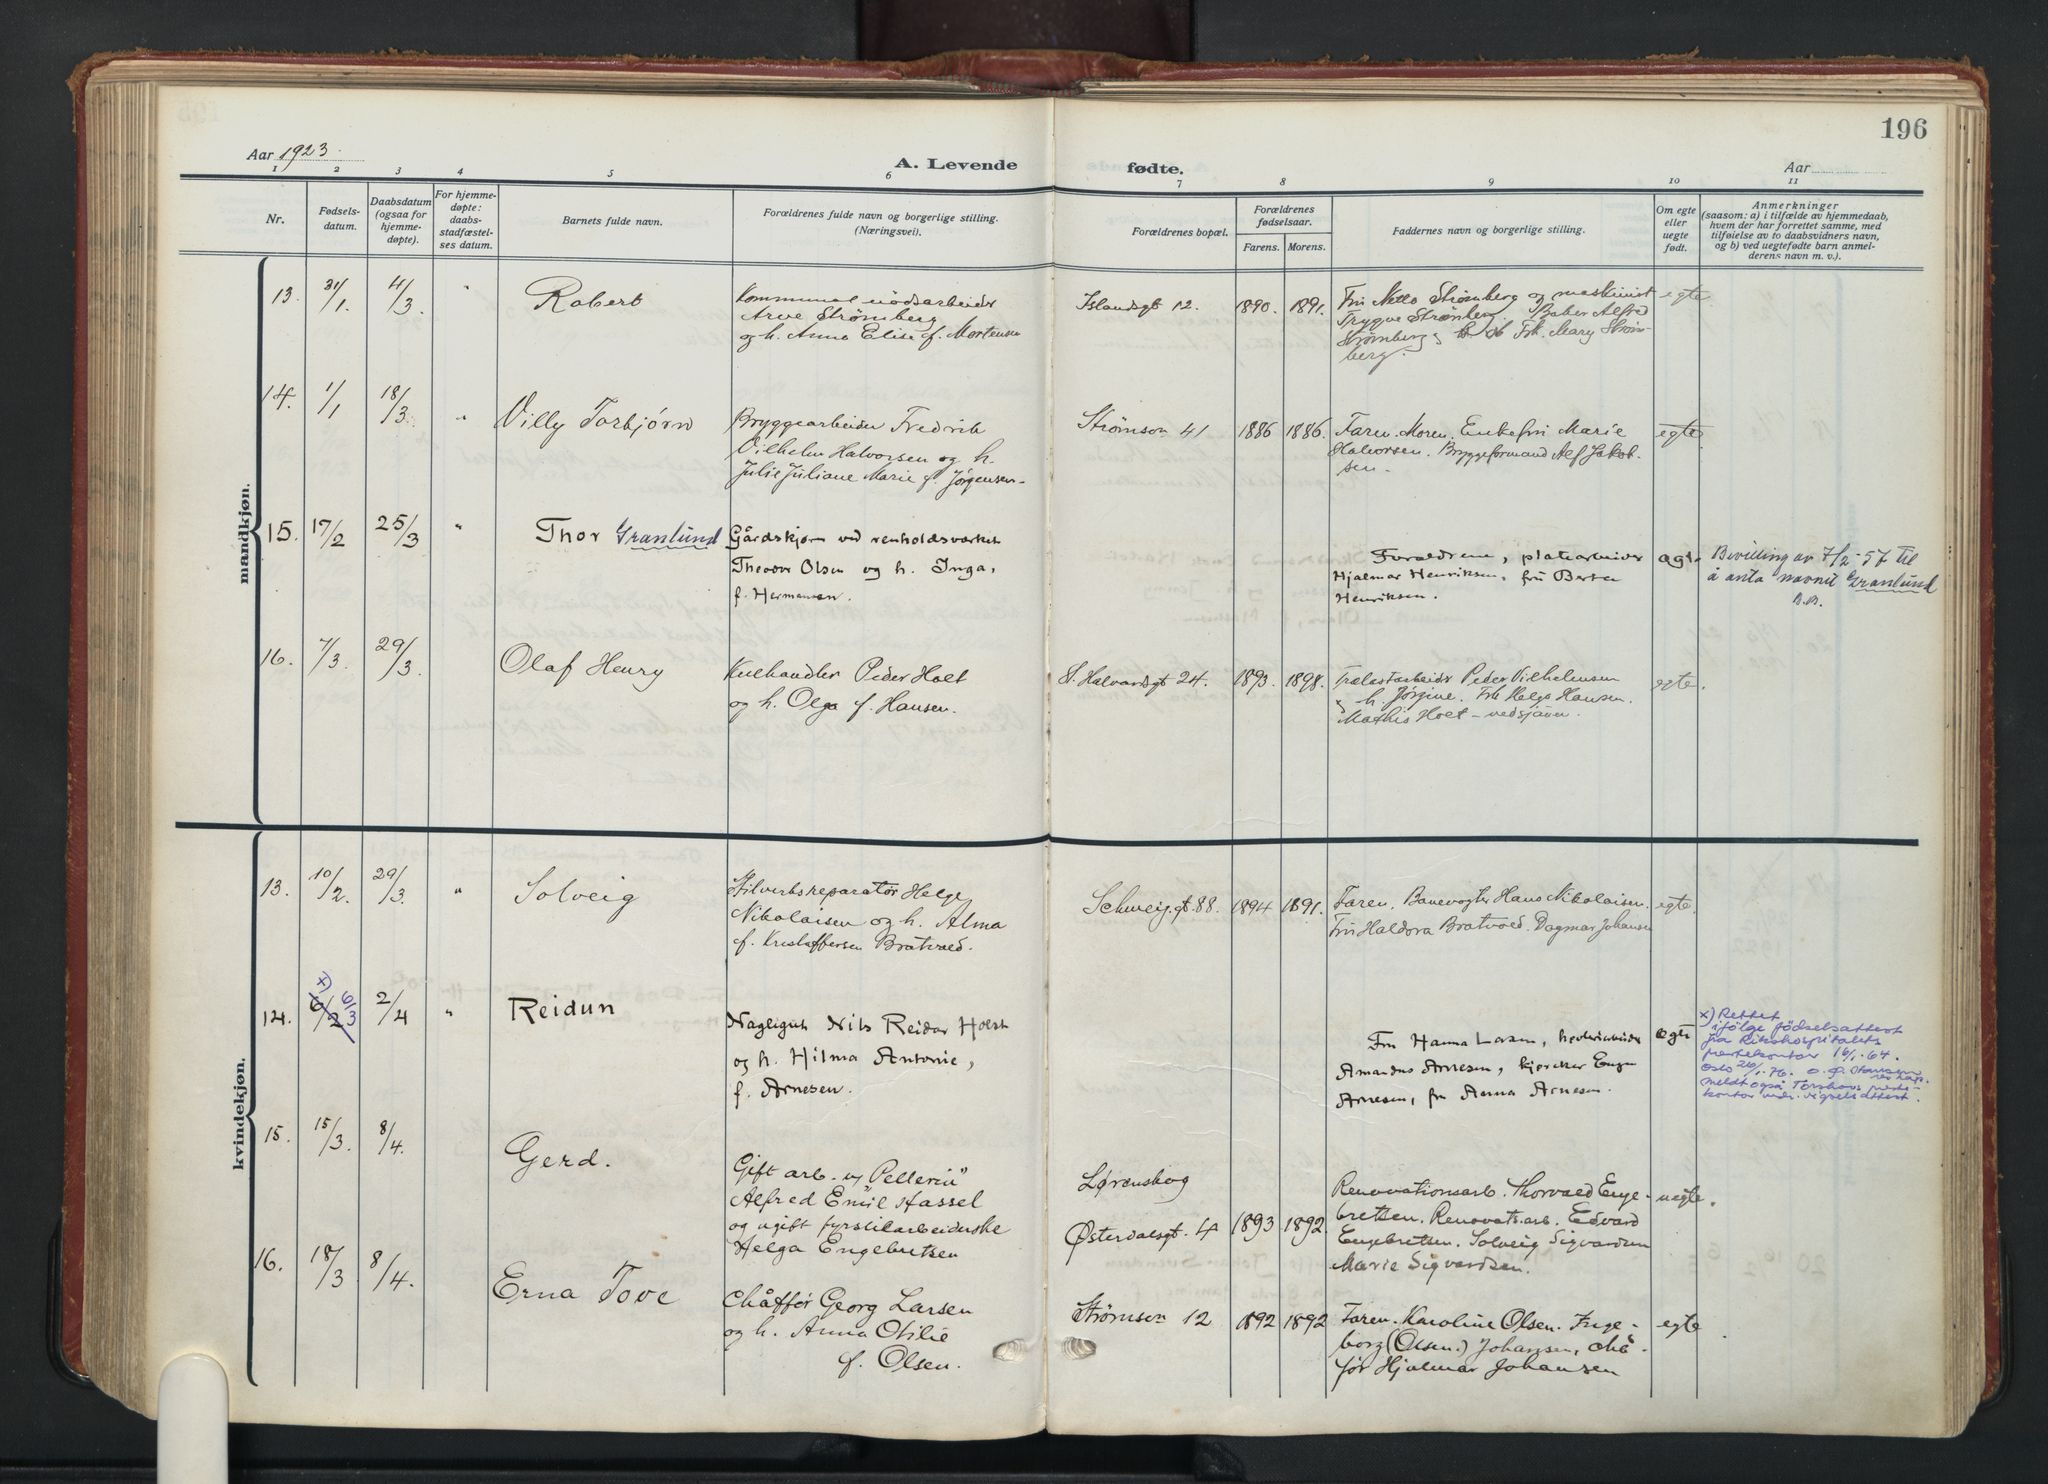 196
Aar 1923.
A. Levende fødte.
Aar
1 2 3 4 5 6 7 8 9 10 11
Nr.
Fødsels-
datum.
Daabsdatum
(ogsaa for
hjemme-
døpte).
For hjemme-
døpte:
daabs-
stadfæstel-
ses datum.
Barnets fulde navn.
Forældrenes fulde navn og borgerlige stilling.
(Næringsvei).
Forældrenes bopæl.
Forældrenes
fødselsaar.
Farens. Morens.
Faddernes navn og borgerlige stilling.
Om egte
eller
uegte
født.
Anmerkninger
(saasom: a) i tilfælde av hjemmedaab,
hvem der har forrettet samme, med
tilføielse av to daabsvidners navn,
og b) ved uegtefødte barn anmel-
derens navn m. v.).
mandkjøn.
13. 31/1. 4/3. " Robert
Kommunal nødsarbeider
Arve Strømberg
og h. Anna Elise f. Mortensen
Islandsgt 12. 1890. 1891.
Fru Netto Strømberg og maskinist
Trygve Strømberg. Baker Alfred
Strømberg Frk. Mary Strøm-
berg.
egte.
14. 1/1 18/3 " Villy Torbjørn
Bryggearbeider Fredrik
Vilhelm Halvorsen og h.
Julie Juliane Marie f. Jørgensen-
Strømson 41 1886 1886.
Faren. Moren. Enkefru Marie
Halvorsen. Bryggeformand Alf Jakob-
sen.
egte.
15. 17/2 25/3 " Thor Granlund
Gårdskjører ved renholdsverket
Theodor Olsen og h. Inga,
f. Hermansen.
Forældrene, platearbeider
Hjalmar Henriksen, fru Berta
Henriksen.
egte.
Bevilling av 7/2-57 til
å anta navnet Granlund
B.B.
16. 7/3. 29/3 Olaf Henry
Kulhandler Peder Holt
og h. Olga f. Hansen.
St. Halvardsgt 24. 1893. 1898.
Trælastarbeider Peder Vilhelmsen
& h. Jørgine. Frk Helga Hansen.
Mathis Holt - vedsjåver.
egte.
kvindekjøn.
13. 10/2. 29/3. " Solveig
Silverksreparatør Helge
Nikolaisen og h. Alma
f. Kristoffersen Bratvold.
Schweig.gt. 88. 1894 1891.
Faren. Banevogter Hans Nikolaisen.
Fru Haldora Bratvold. Dagmar Johansen
egte.
14. x) 6/2 6/3 2/4 " Reidun
Nagligut Nils Reidar Holst
og h. Hilma Antonie,
f. Arnesen.
Fru Hanna Larsen,
Amandus Arnesen, kjørsker Eugen
Arnesen, fru Anna Arnesen.
egte
x) Rettet
ifølge fødselsattest
fra Rikshospitalets
prestekontor 16/1-64.
Oslo 26/1-76.
meldt også Torshov preste-
kontor vedr. vigselsattest.
15. 15/3. 8/4. Gerd.
Gift arb. v/ "Pellerin"
Alfred Emil Hassel
og ugift fyrstikarbeiderske
Helga Engebretsen
Lørensbog
Østerdalsgt. 4 1893 1892.
Renovationsarb. Thorvald Enge-
bretsen. Renovats.arb. Edvard
Engebretsen. Solveig Sigvardsen
Marie Sigvardsen.
uegte.
16. 18/3 8/4. Erna Tove
Chåffør Georg Larsen
og h. Anna Otilie
f. Olsen.
Strømson 12 1892 1892
Faren. Karoline Olsen. Inge-
borg (Olsen.) Johansen, chå-
før Hjalmar Johansen
egte.